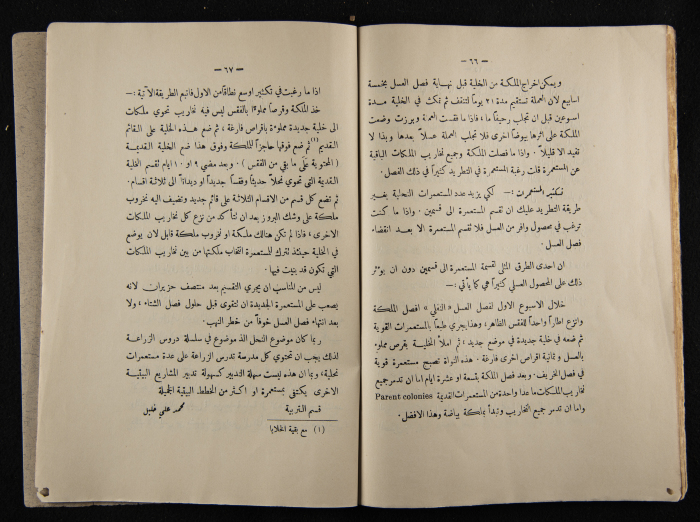 — ٦٦ —
ويمكن اخراج الملكة من الخلية قبل نهاية فصل العسل بخمسة
اسابيع لان العملة تستقيم مدة ٢١ يوماً لتنقف ثم تمكث في الخلية مدة
اسبوعين قبل ان تجلب رحيقاً ما، فاذا ما فقدت العملة وبرزت وضعت
الملكة على اثرها بيوضاً اخرى فلا تجلب العملة عسلاً بعدها وبذا لا
تفيد الا قليلاً. واذا ما فصلت الملكة وجميع نخاريب الملكات الباقية
عن المستعمرة قلت رغبة المستعمرة في التطريد كثيراً في ذلك الفصل.
تكثير المستعمرات :— لكي يزيد عدد المستعمرات النحلية بغير
طريقة التطريد عليك ان تقسم المستعمرة الى قسمين. واذا ما كنت
ترغب في محصول وافر من العسل فلا تقسم المستعمرة الا بعد انقضاء
فصل العسل.
ان احدى الطرق المثلى لقسمة المستعمرة الى قسمين دون ان يؤثر
ذلك على المحصول العسلي كثيراً هي كما يأتي :—
خلال الاسبوع الاول لفصل العسل «الفعلي» افصل الملكة
وانزع اطاراً واحداً للفقس الظاهر، وهذا يجري طبعاً بالمستعمرات القوية
ثم ضعه في خلية جديدة في موضع جديد، ثم املأ الخلية بقرص مملوء
بالعسل و ثمانية اقراص اخرى فارغة. هذه النواة تصبح مستعمرة قوية
في فصل الخريف. وبعد فصل الملكة بتسعة او عشرة ايام اما ان تدمر جميع
نخاريب الملكات ما عدا واحدة من المستعمرات القديمة Parent colonies
واما ان تدمر جميع النخاريب وتبدأ بملكة بياضة وهذا الافضل.
— ٦٧ —
اذا ما رغبت في تكثير اوسع نطاقاً من الاول فاتبع الطريقة الآتية :—
خذ الملكة وقرصاً مملوءاً بالفقس ليس فيه نخاريب تحوي ملكات
الى خلية جديدة مملوءة باقراص فارغة، ثم ضع هذه الخلية على القائم
القديم (١) ثم ضع فوقها حاجزاً للملكة وفوق هذا ضع الخلية القديمة
(المحتوية على ما بقي من الفقس) . وبعد مضي ٩ او ١٠ ايام تقسم الخلية
القديمة التي تحوي نحلاً حديثاً وفقساً جديداً او ديداناً الى ثلاثة اقسام.
ثم تضع كل قسم من الاقسام الثلاثة على قائم جديد وتضيف اليه نخروب
ملكة على وشك البروز بعد ان تتأكد من نزع كل نخاريب الملكات
الاخرى، فاذا لم تكن هنالك ملكة او نخروب ملكة قابل لان يوضع
في الخلية حينئذ تترك للمستعمرة انتخاب ملكتها من بين نخاريب الملكات
التي تكون قد بنيت فيها.
ليس من المناسب ان يجري التقسيم بعد منتصف حزيران لانه
يصعب على المستعمرة الجديدة ان تتقوى قبل حلول فصل الشتاء، ولا
بعد انتهاء فصل العسل خوفاً من خطر النهب.
ربما كان موضوع النحل الذ موضوع في سلسلة دروس الزراعة
لذلك يجب ان تحتوي كل مدرسة تدرس الزراعة على عدة مستعمرات
نحلية، وبما ان هذه ليست سهلة التدبير كسهولة تدبير المشاريع البيتية
الاخرى يكتفى بمستعمرة او اكثر من الخطط البيتية الجميلة
قسم التربية
محمد علي فلفل
(١) مع بقية الخلايا